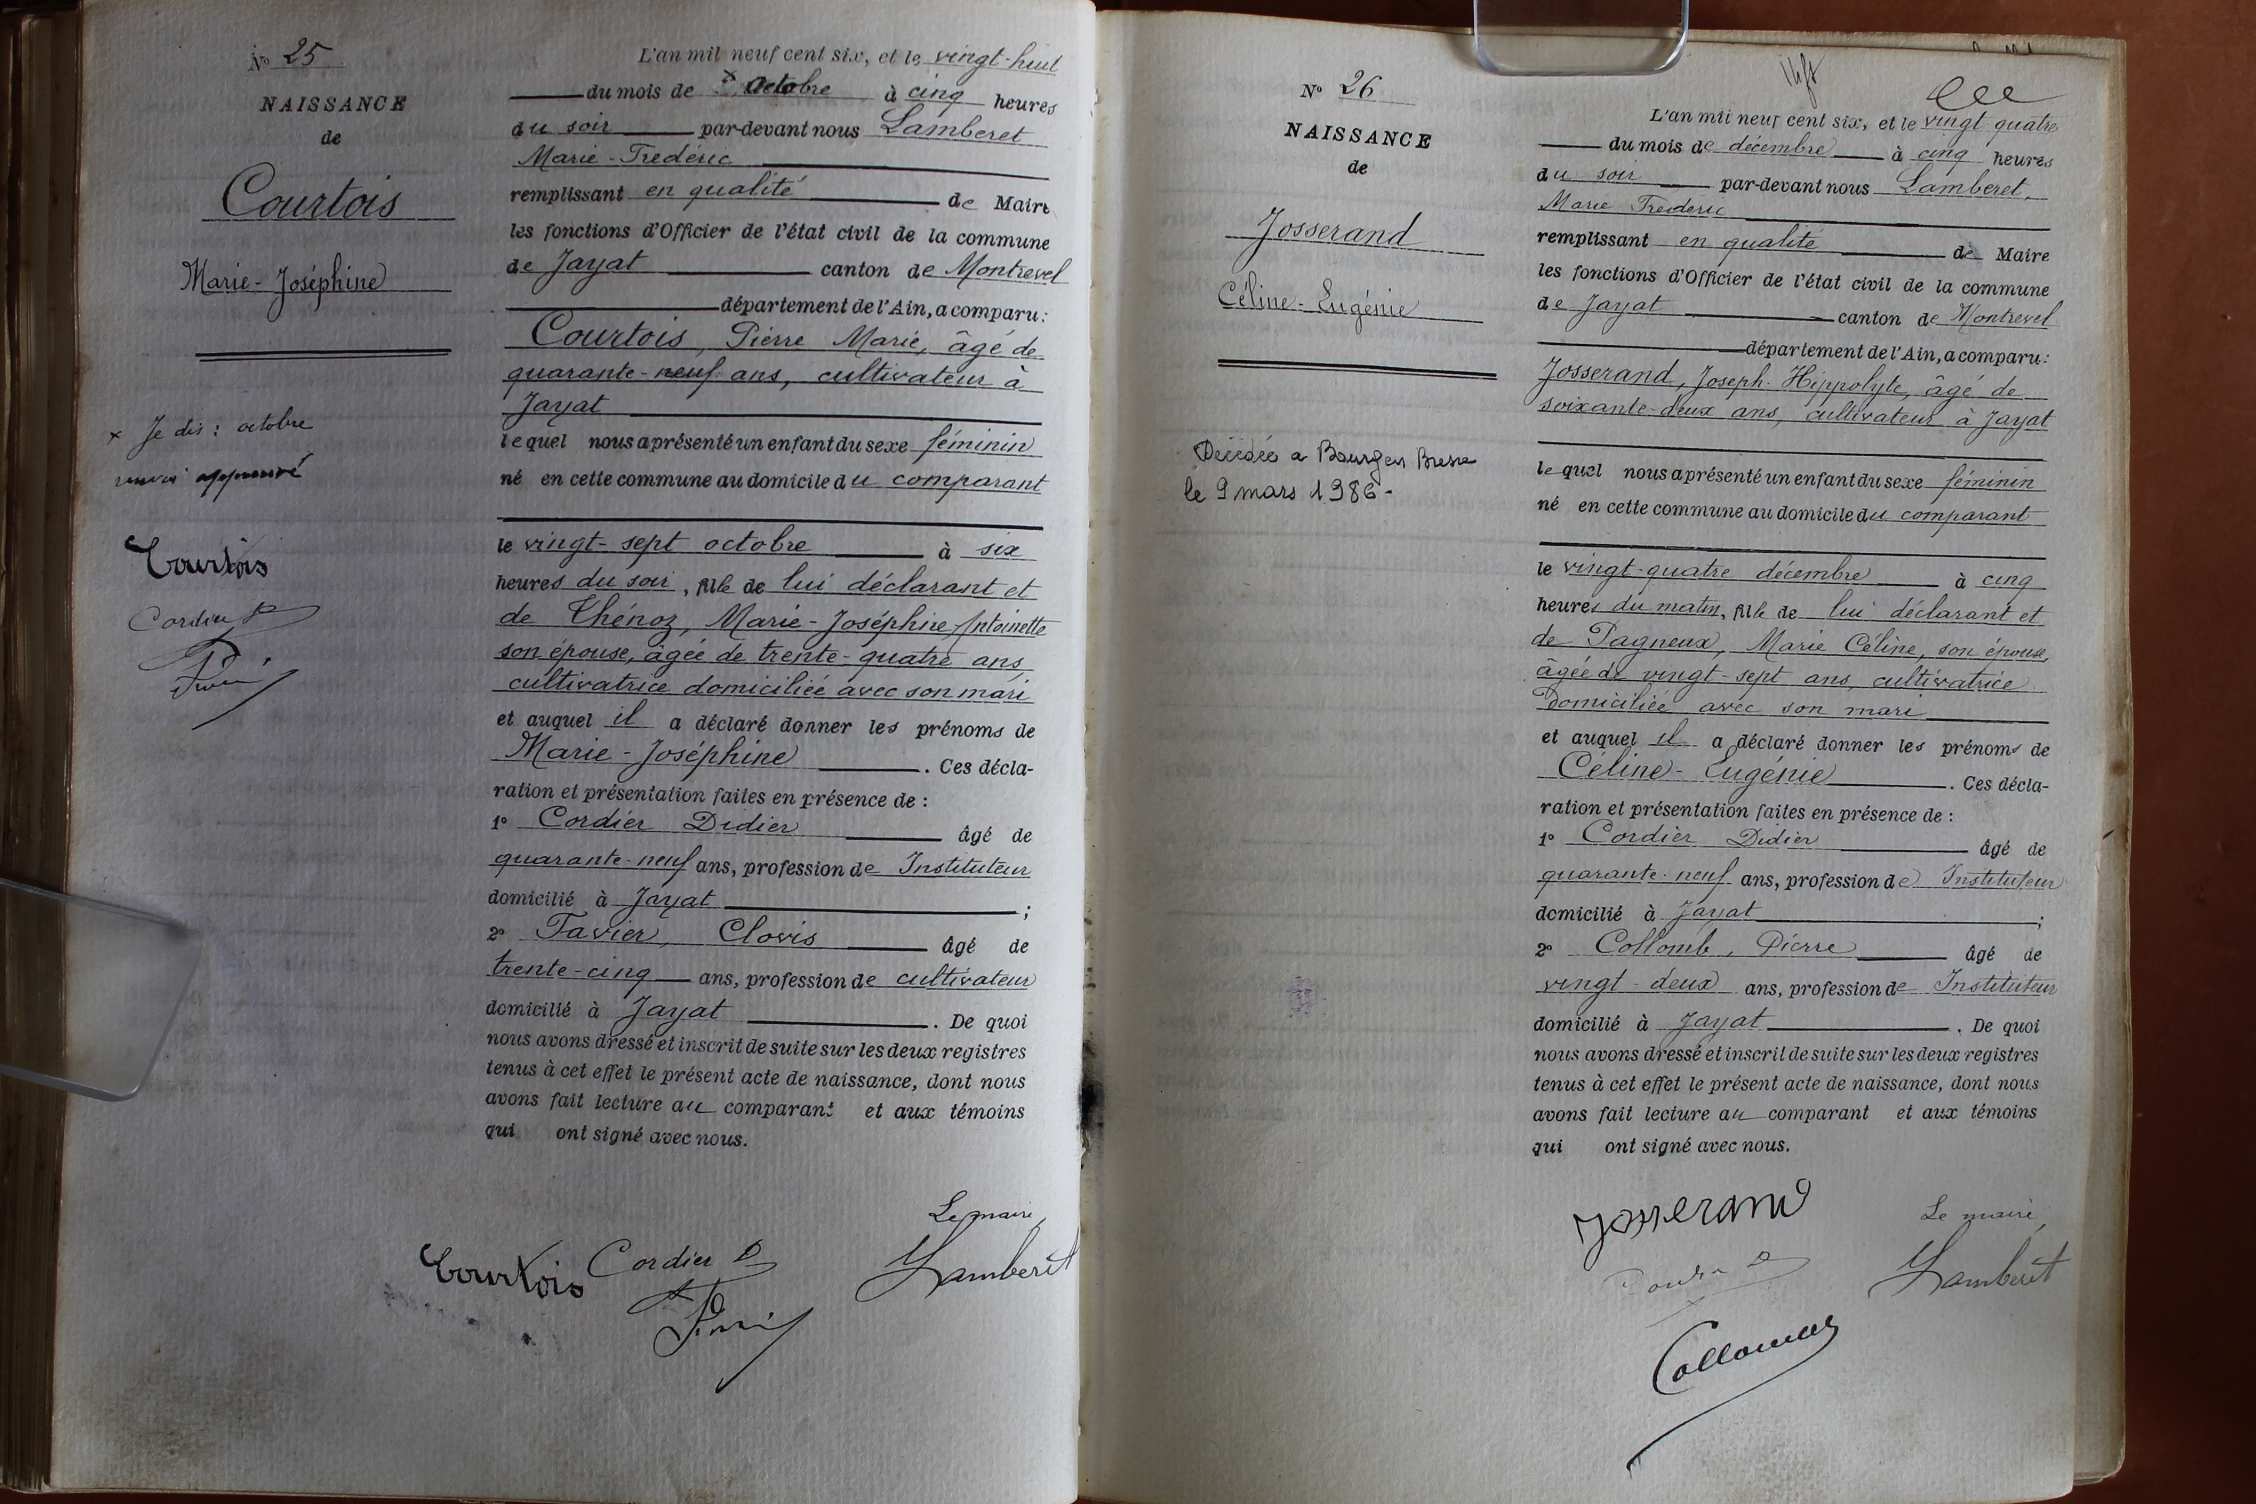 N° 25
NAISSANCE
de
Courtois
Marie-Joséphine
x Je dis : octobre
renvoi approuvé
Courtois
Cordier D
L'an mil neuf cent six, et le vingt-huit
du mois de x octobre à cinq heures
du soir par-devant nous Lamberet
Marie-Frédéric
remplissant en qualité de Maire
les fonctions d'Officier de l'état civil de la commune
de Jayat canton de Montrevel
département de l'Ain, a comparu:
Courtois, Pierre Marie, âgé de
quarante-neuf ans, cultivateur à
Jayat
lequel nous a présenté un enfant du sexe féminin
né en cette commune au domicile du comparant
le vingt-sept octobre à six
heures du soir, fille de lui déclarant et
de Thénoz, Marie-Joséphine-Antoinette
son épouse, âgée de trente-quatre ans,
cultivatrice domiciliée avec son mari
et auquel il a déclaré donner les prénoms de
Marie-Joséphine. Ces décla-
ration et présentation faites en présence de :
1° Cordier Didier âgé de
quarante-neuf ans, profession de Instituteur
domicilié à Jayat ;
2° Favier, Clovis âgé de
trente-cinq ans, profession de cultivateur
domicilié à Jayat. De quoi
nous avons dressé et inscrit de suite sur les deux registres
tenus à cet effet le présent acte de naissance, dont nous
avons fait lecture au comparant et aux témoins
qui ont signé avec nous.
Le maire,
Courtois Cordier D Lamberet
N° 26
NAISSANCE
de
Josserand
Céline-Eugénie
Décédée a Bourg en Bresse
le 9 mars 1986-
L'an mil neuf cent six, et le vingt-quatre
du mois de décembre à cinq heures
du soir par-devant nous Lamberet,
Marie Frédéric
remplissant en qualité de Maire
les fonctions d'Officier de l'état civil de la commune
de Jayat canton de Montrevel
département de l'Ain, a comparu:
Josserand, Joseph-Hippolyte, âgé de
soixante-deux ans, cultivateur à Jayat
lequel nous a présenté un enfant du sexe féminin
né en cette commune au domicile du comparant
le vingt-quatre décembre à cinq
heures du matin, fille de lui déclarant et
de Pagneux, Marie Céline, son épouse,
âgée de vingt-sept ans, cultivatrice
Domiciliée avec son mari
et auquel il a déclaré donner les prénoms de
Céline-Eugénie. Ces décla-
ration et présentation faites en présence de :
1° Cordier Didier âgé de
quarante-neuf ans, profession de Instituteur
domicilié à Jayat ;
2° Collomb, Pierre âgé de
vingt-deux ans, profession de Instituteur
domicilié à Jayat. De quoi
nous avons dressé et inscrit de suite sur les deux registres
tenus à cet effet le présent acte de naissance, dont nous
avons fait lecture au comparant et aux témoins
qui ont signé avec nous.
Josserand Le maire,
Cordier D Lamberet
Collomb